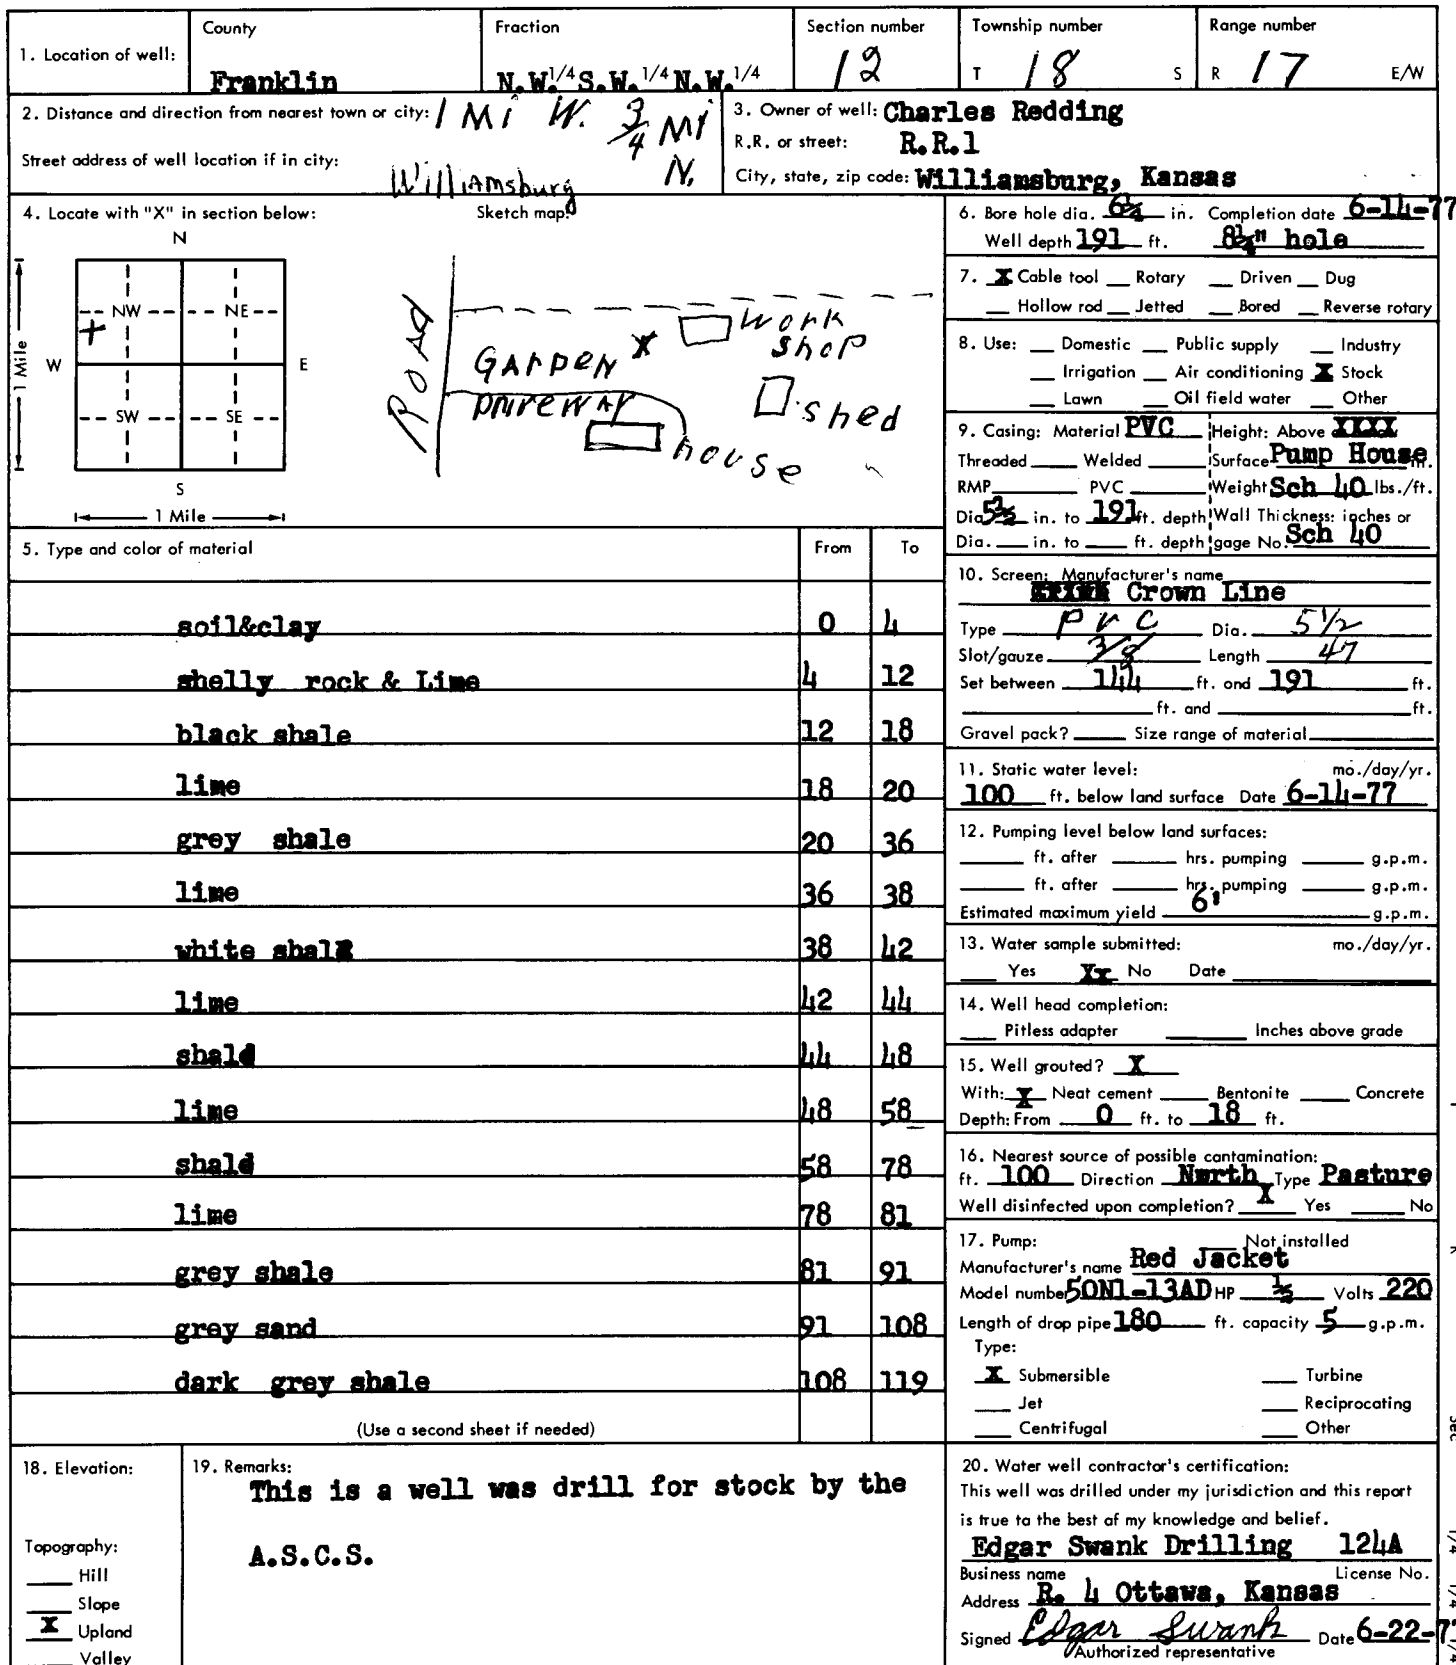 1. Location of well:
County
Franklin
Fraction
N.W. 1/4 S.W. 1/4 N.W. 1/4
Section number
12
Township number
T 18 S
Range number
R 17 E/W
2. Distance and direction from nearest town or city: 1 Mi W. 3/4 Mi N.
Street address of well location if in city:
Williamsburg
3. Owner of well: Charles Redding
R.R. or street: R.R.1
City, state, zip code: Williamsburg, Kansas
4. Locate with "X" in section below:
Sketch map:
N
NW NE
W E
SW SE
S
1 Mile
1 Mile
Road
Work Shop
GARDEN X
DRIVEWAY
shed
house
5. Type and color of material From To
soil&clay 0 4
shelly rock & Lime 4 12
black shale 12 18
lime 18 20
grey shale 20 36
lime 36 38
white shale 38 42
lime 42 44
shale 44 48
lime 48 58
shale 58 78
lime 78 81
grey shale 81 91
grey sand 91 108
dark grey shale 108 119
(Use a second sheet if needed)
6. Bore hole dia. 6¼ in. Completion date 6-14-77
Well depth 191 ft. 8¼" hole
7. X Cable tool Rotary Driven Dug
Hollow rod Jetted Bored Reverse rotary
8. Use: Domestic Public supply Industry
Irrigation Air conditioning X Stock
Lawn Oil field water Other
9. Casing: Material PVC Height: Above XXXX
Threaded Welded Surface Pump House in.
RMP PVC Weight Sch 40 lbs./ft.
Dia 5½ in. to 191 ft. depth Wall Thickness: inches or
Dia. in. to ft. depth gage No. Sch 40
10. Screen: Manufacturer's name
Crown Line
Type PVC Dia. 5 1/2
Slot/gauze 3/8 Length 47
Set between 144 ft. and 191 ft.
ft. and ft.
Gravel pack? Size range of material
11. Static water level: mo./day/yr.
100 ft. below land surface Date 6-14-77
12. Pumping level below land surfaces:
ft. after hrs. pumping g.p.m.
ft. after hrs. pumping g.p.m.
Estimated maximum yield 6' g.p.m.
13. Water sample submitted: mo./day/yr.
Yes Xx No Date
14. Well head completion:
Pitless adapter Inches above grade
15. Well grouted? X
With: X Neat cement Bentonite Concrete
Depth: From 0 ft. to 18 ft.
16. Nearest source of possible contamination:
ft. 100 Direction North Type Pasture
Well disinfected upon completion? X Yes No
17. Pump: Not installed
Manufacturer's name Red Jacket
Model number 50N1-13AD HP ½ Volts 220
Length of drop pipe 180 ft. capacity 5 g.p.m.
Type:
X Submersible Turbine
Jet Reciprocating
Centrifugal Other
18. Elevation:
Topography:
Hill
Slope
X Upland
Valley
19. Remarks:
This is a well was drill for stock by the
A.S.C.S.
20. Water well contractor's certification:
This well was drilled under my jurisdiction and this report
is true to the best of my knowledge and belief.
Edgar Swank Drilling 124A
Business name License No.
Address R. 4 Ottawa, Kansas
Signed Edgar Swank Date 6-22-7
Authorized representative
Sec
1/4 1/4 1/4